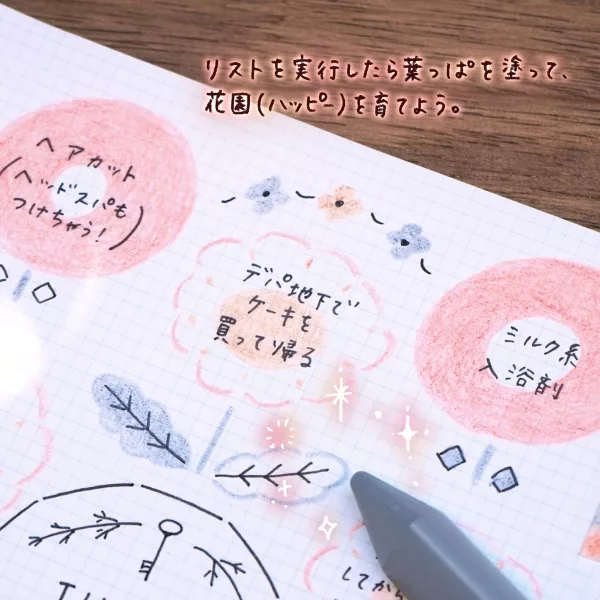 リストを実行したら葉っぱを塗って、
花園(ハッピー)を育てよう。
ヘアカット
(ヘッドスパも
つけちゃう!)
デパ地下で
ケーキを
買って帰る
ミルク系
入浴剤
してから